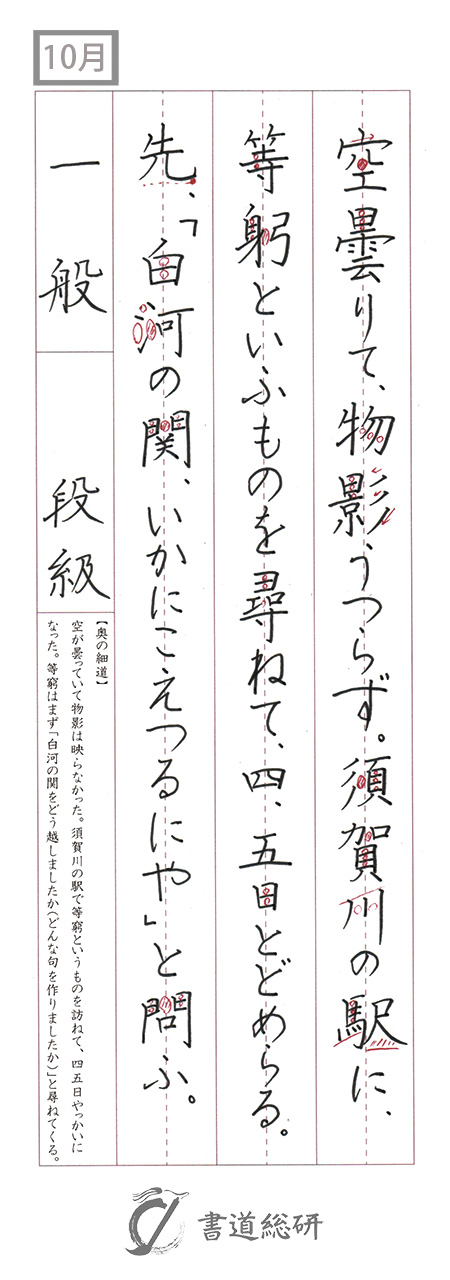 10月
空曇りて、物影うつらず。須賀川の駅に、
等躬といふものを尋ねて、四、五日とどめらる。
先、「白河の関、いかにこえつるにや」と問ふ。
一般
段級
【奥の細道】
空が曇っていて物影は映らなかった。須賀川の駅で等窮というものを訪ねて、四五日やっかいに
なった。等窮はまず「白河の関をどう越しましたか(どんな句を作りましたか)」と尋ねてくる。
書道総研